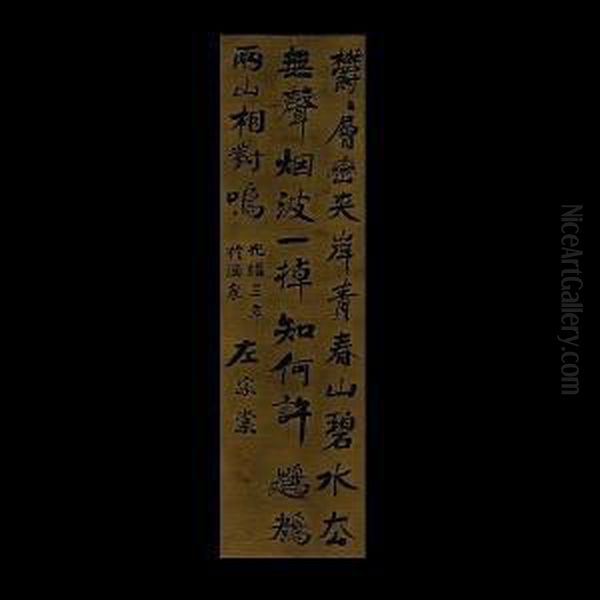 鬱〻層峦夾岸青春山碧水厺
無聲烟波一棹知何許鶗鴂
兩山相對鳴
光緒三年
於酒泉
左宗棠
NiceArtGallery.com